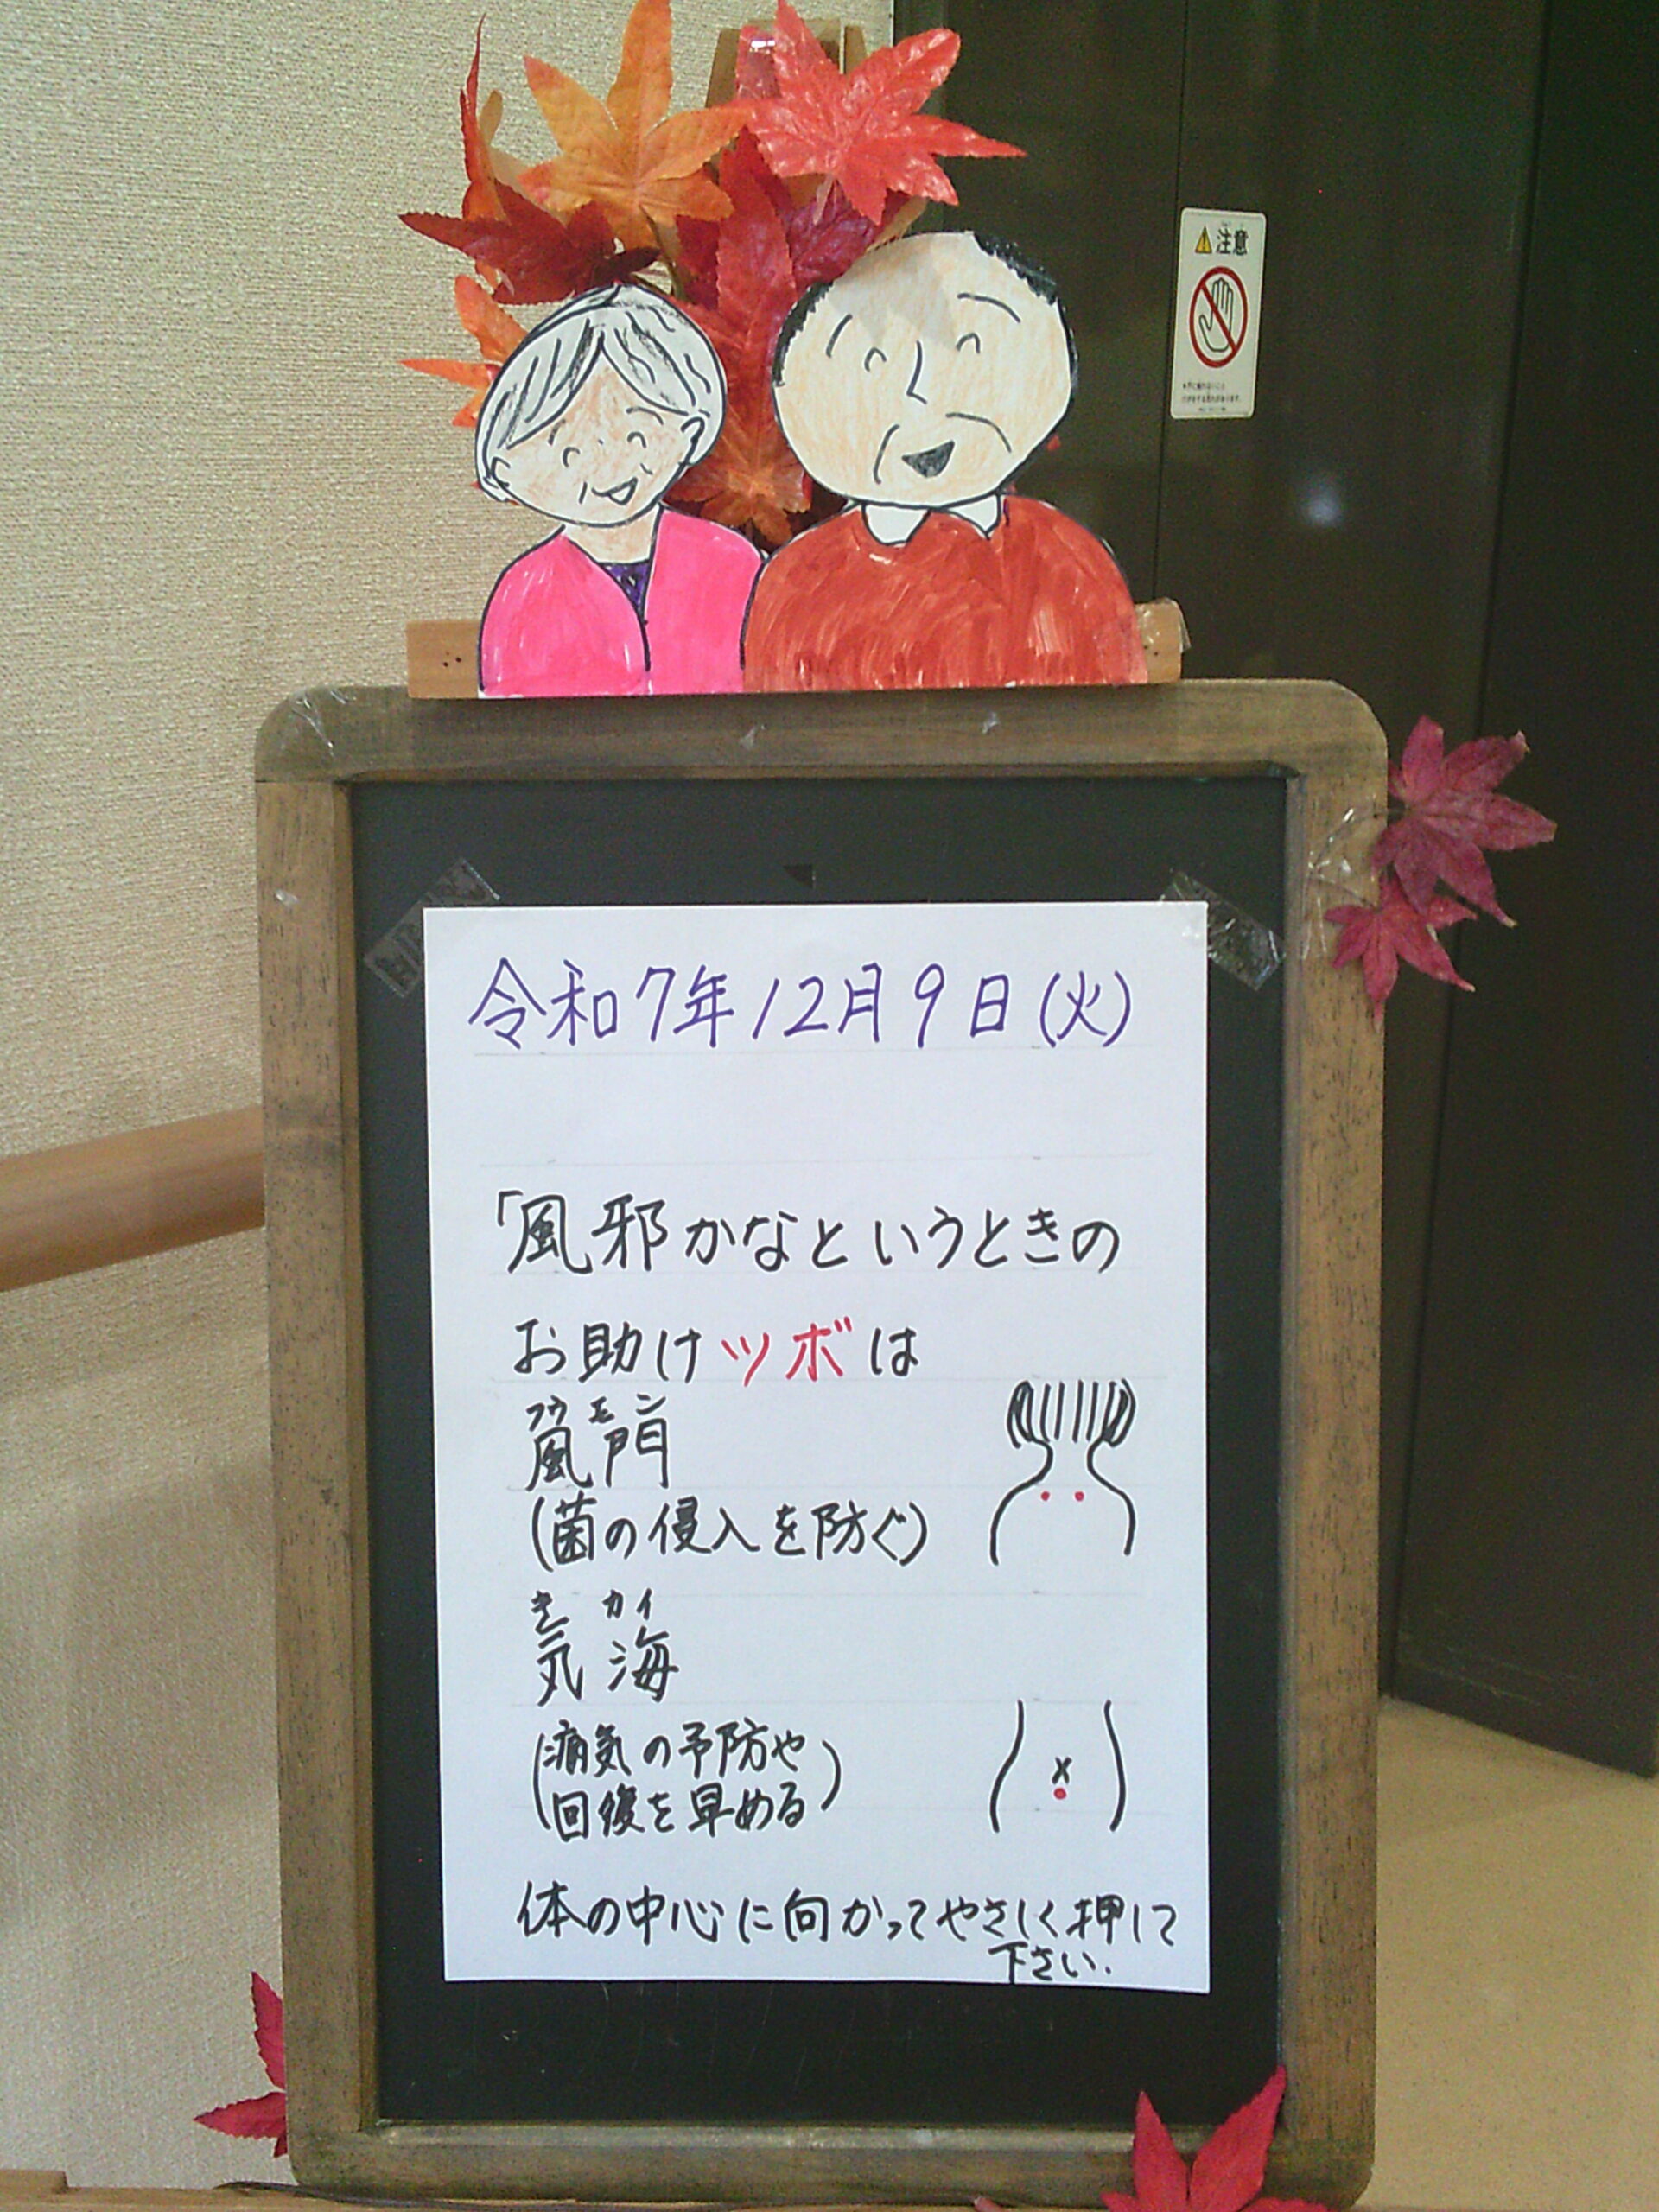 注意
令和7年12月9日(火)
「風邪かなというときの
お助けツボは
フウモン
風門
(菌の侵入を防ぐ)
キカイ
気海
(病気の予防や
回復を早める)
体の中心に向かってやさしく押して
下さい.